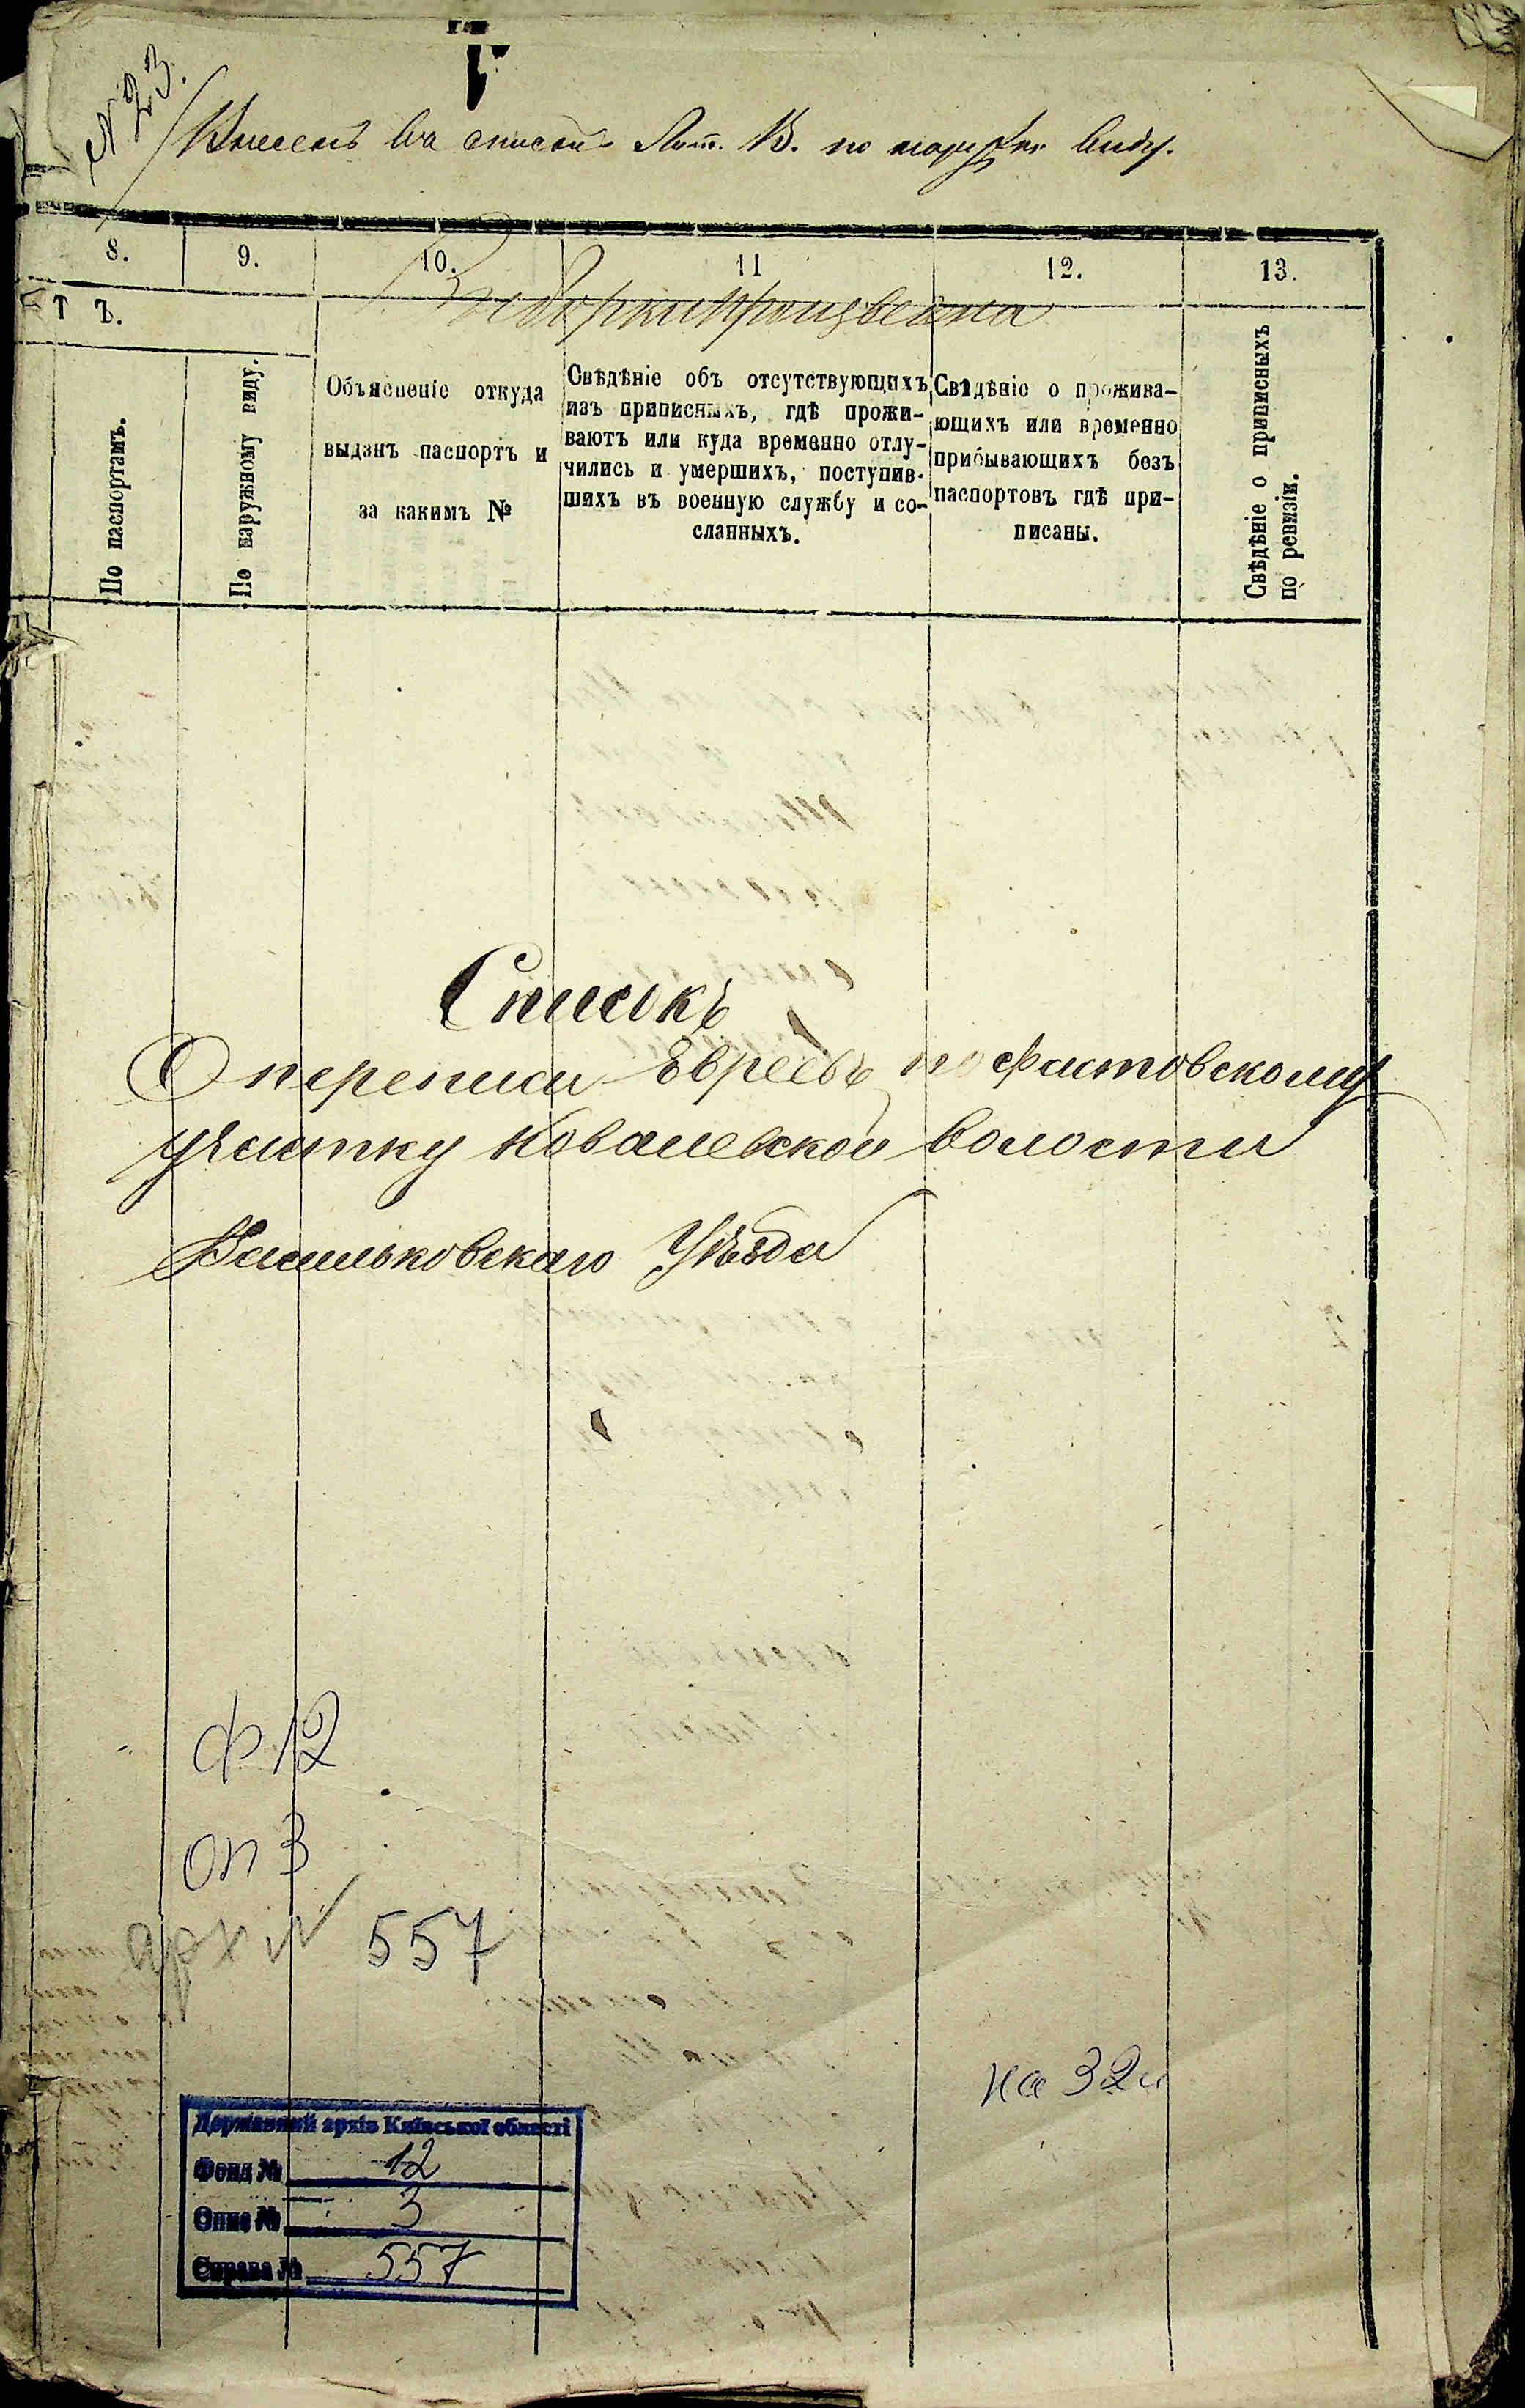 № 23.
Внесенъ въ списки Лит. В. по наружн. виду.
8. 9. 10. 11 12. 13.
Т Ъ.
По паспортамъ.
По наружному виду.
Объясненіе откуда
выданъ паспортъ и
за какимъ №
Свѣдѣніе объ отсутствующихъ
изъ приписныхъ, гдѣ прожи-
ваютъ или куда временно отлу-
чились и умершихъ, поступив-
шихъ въ военную службу и со-
сланныхъ.
Свѣдѣніе о прожива-
ющихъ или временно
прибывающихъ безъ
паспортовъ гдѣ при-
писаны.
Свѣдѣніе о приписныхъ
по ревизіи.
Списокъ
О переписи Евреевъ по Фастовскому
участку Ковалевской волости
Васильковскаго Уѣзда
Ф. 12
оп 3
арх № 557
на 32л
Державний архів Київської області
Фонд № 12
Опис № 3
Справа № 557